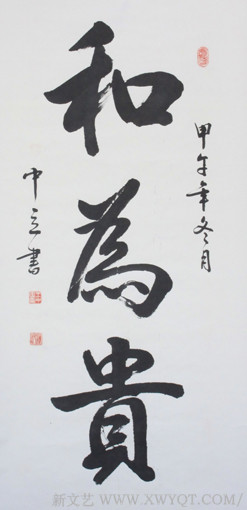 甲午年冬月
和為貴
中立書
新文艺 WWW.XWYQT.COM